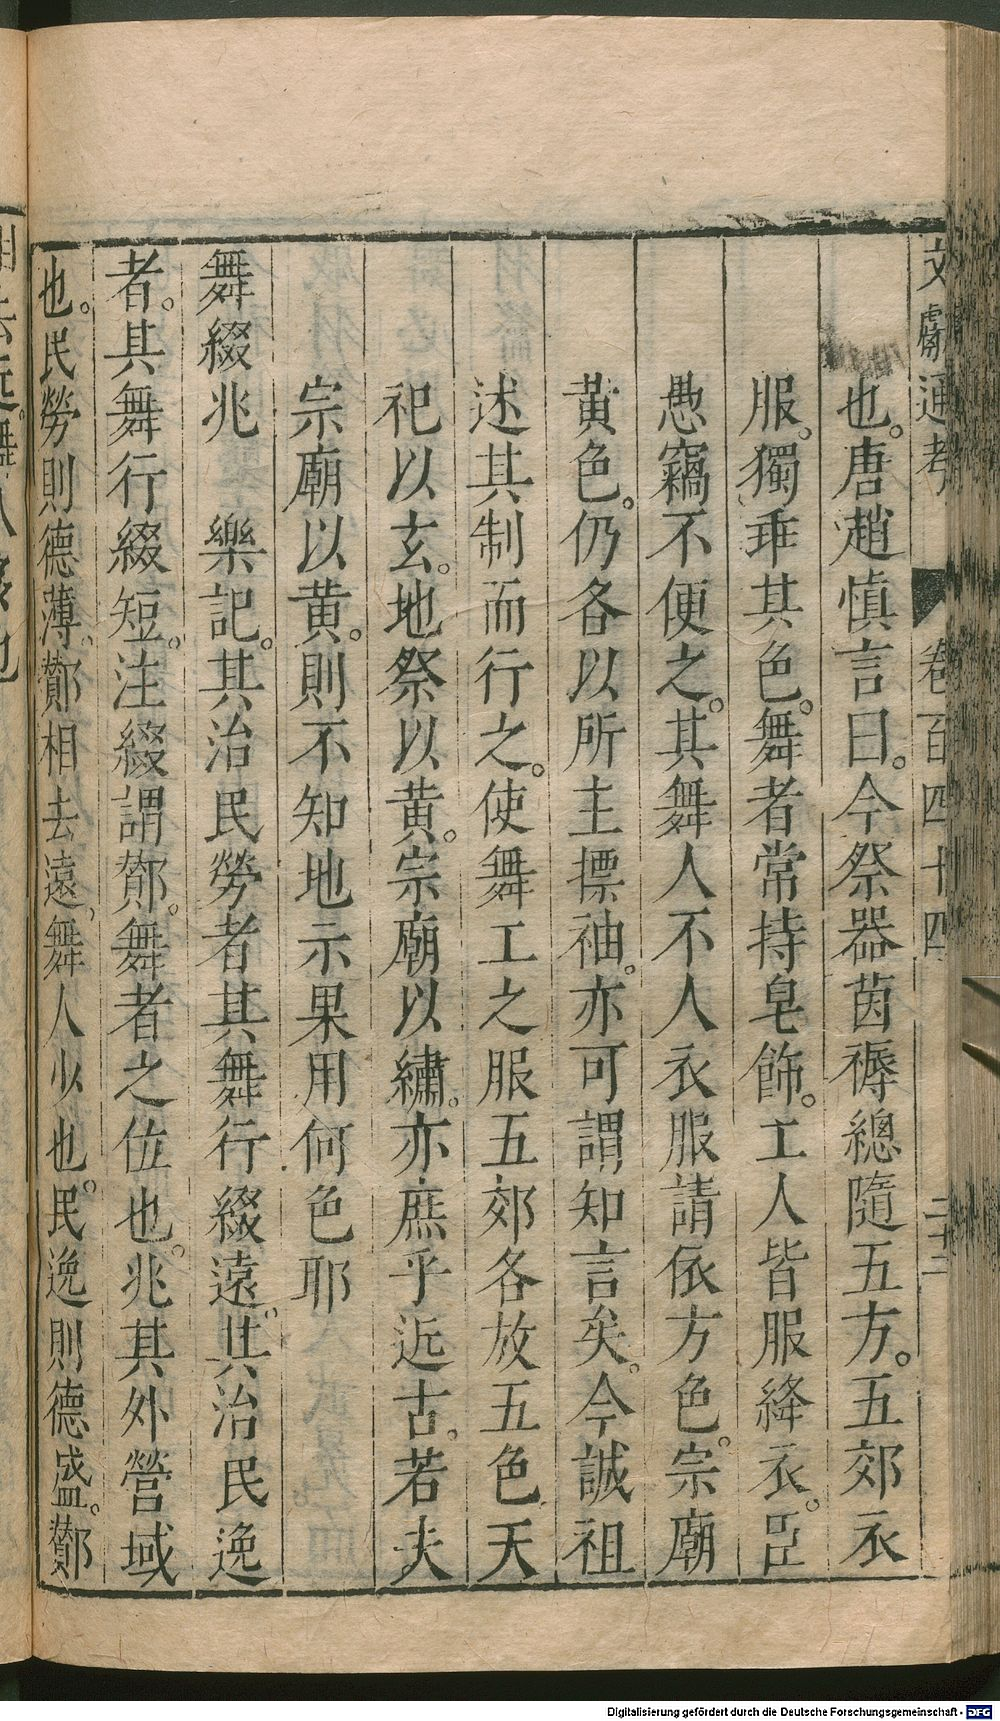 文獻通考 卷一百四十四 二十二
也。唐趙慎言曰。今祭器茵褥總隨五方。五郊衣
服。獨乖其色。舞者常持皂飾。工人皆服絳衣。臣
愚竊不便之。其舞人不人衣服請依方色。宗廟
黃色。仍各以所主摽袖。亦可謂知言矣。今誠祖
述其制而行之。使舞工之服五郊各放五色天
祀以玄。地祭以黃。宗廟以繡。亦庶乎近古。若夫
宗廟以黃。則不知地示果用何色耶
舞綴兆 樂記。其治民勞者其舞行綴遠。其治民逸
者。其舞行綴短。注綴謂酇。舞者之位也。兆其外營域
也。民勞則德薄。酇相去遠。舞人少也。民逸則德盛。酇
Digitalisierung gefördert durch die Deutsche Forschungsgemeinschaft - DFG